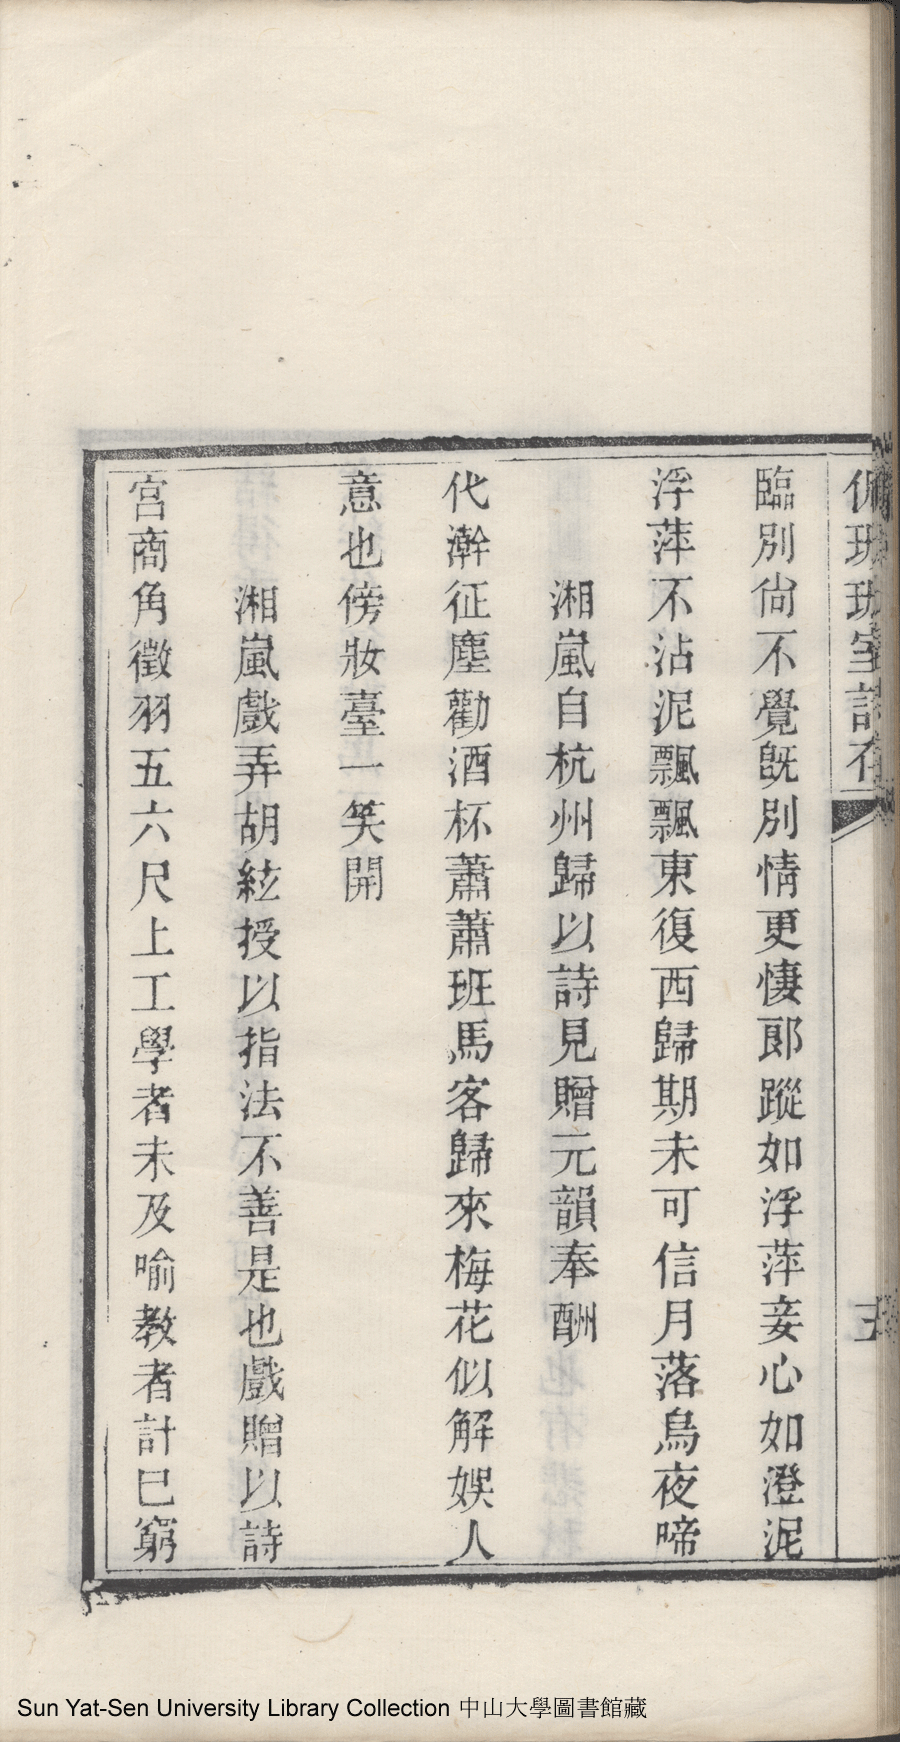 珊珊室詩存
臨別尙不覺旣別情更悽郞蹤如浮萍妾心如澄泥
浮萍不沾泥飄飄東復西歸期未可信月落烏夜啼
湘嵐自杭州歸以詩見贈元韻奉酬
代澣征塵勸酒杯蕭蕭班馬客歸來梅花似解娛人
意也傍妝臺一笑開
湘嵐戲弄胡絃授以指法不善是也戲贈以詩
宮商角徵羽五六尺上工學者未及喻教者計已窮
Sun Yat-Sen University Library Collection 中山大學圖書館藏